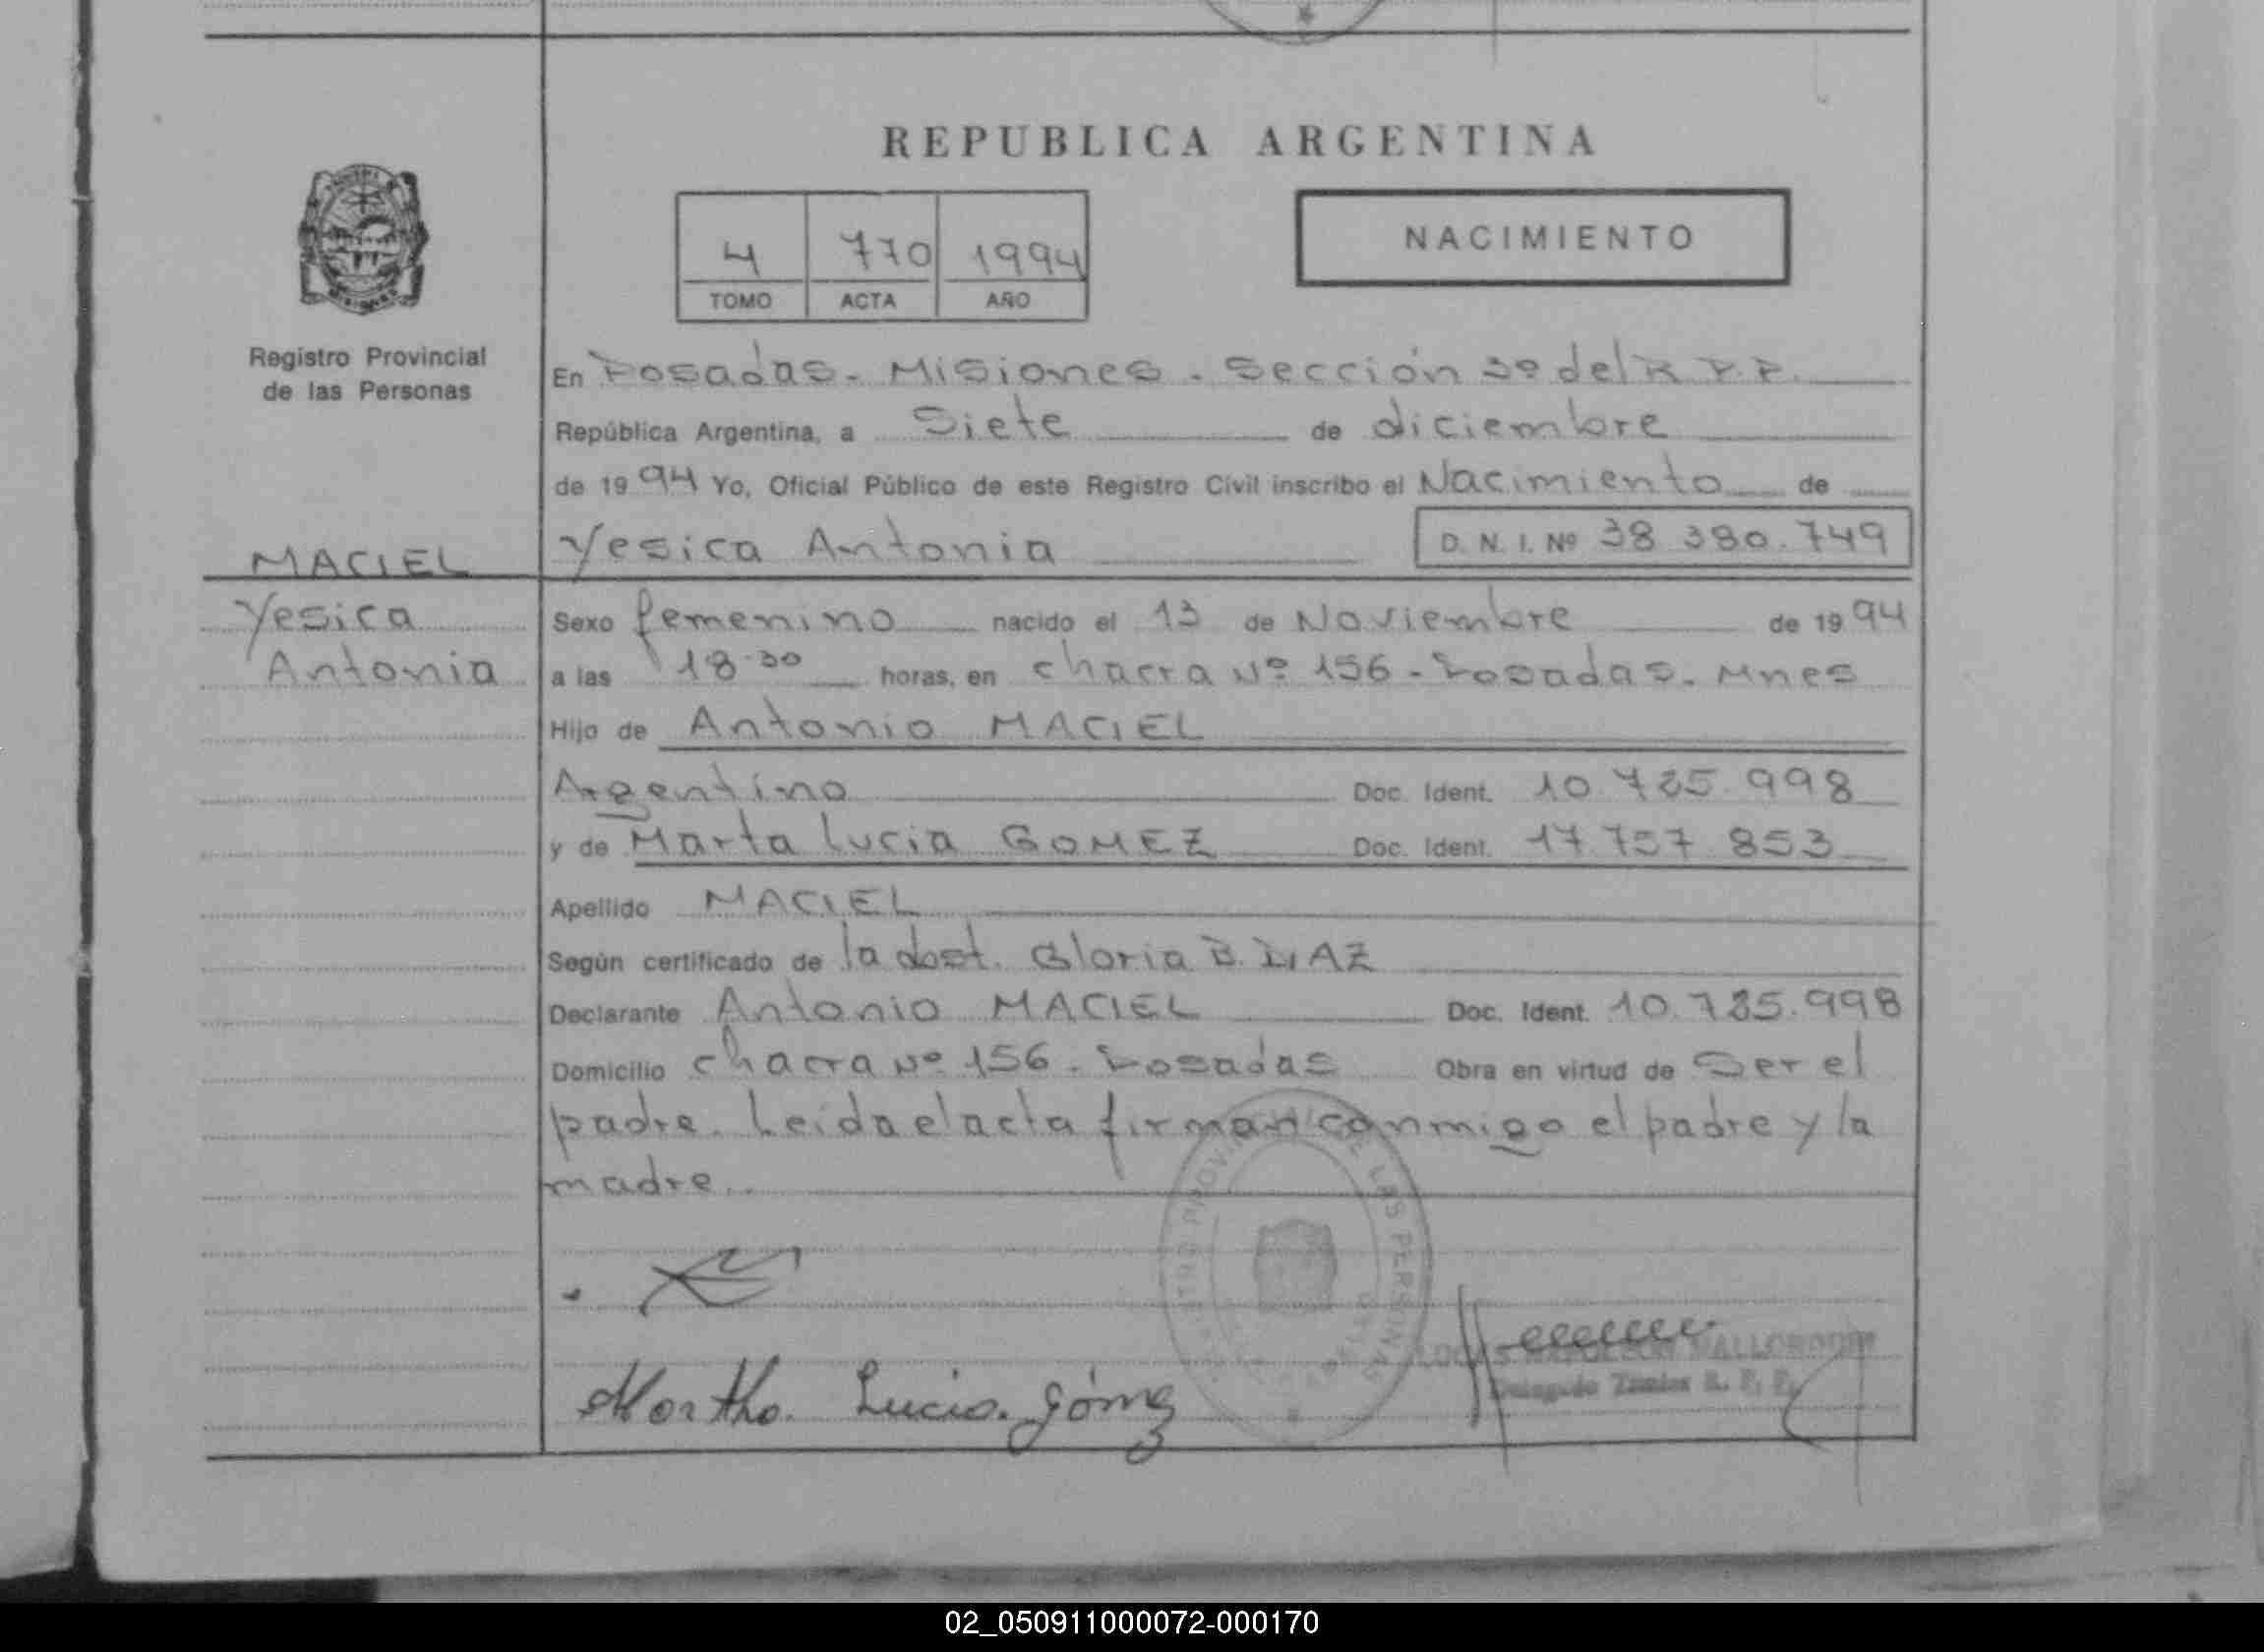 REPUBLICA ARGENTINA
4 770 1994
TOMO ACTA AÑO
NACIMIENTO
Registro Provincial
de las Personas
En Posadas. Misiones. Sección 3º del R.P.P.
República Argentina, a Siete de diciembre
de 1994 Yo, Oficial Público de este Registro Civil inscribo el Nacimiento de
MACIEL
Yesica Antonia D. N. I. Nº 38 380.749
Yesica
Antonia
Sexo femenino nacido el 13 de Noviembre de 1994
a las 18.30 horas, en chacra Nº 156 - Posadas. Mnes
Hijo de Antonio MACIEL
Argentino Doc. Ident. 10.785.998
y de Marta Lucia GOMEZ Doc. Ident. 17.757 853
Apellido MACIEL
Según certificado de la obst. Gloria B. DIAZ
Declarante Antonio MACIEL Doc. Ident. 10.785.998
Domicilio chacra Nº 156. Posadas Obra en virtud de Ser el
padre. Leida el acta firman conmigo el padre y la
madre..
LAS PERSONAS
Martha Lucia Gómez
Delegado Titular R. P. P.
02_050911000072-000170